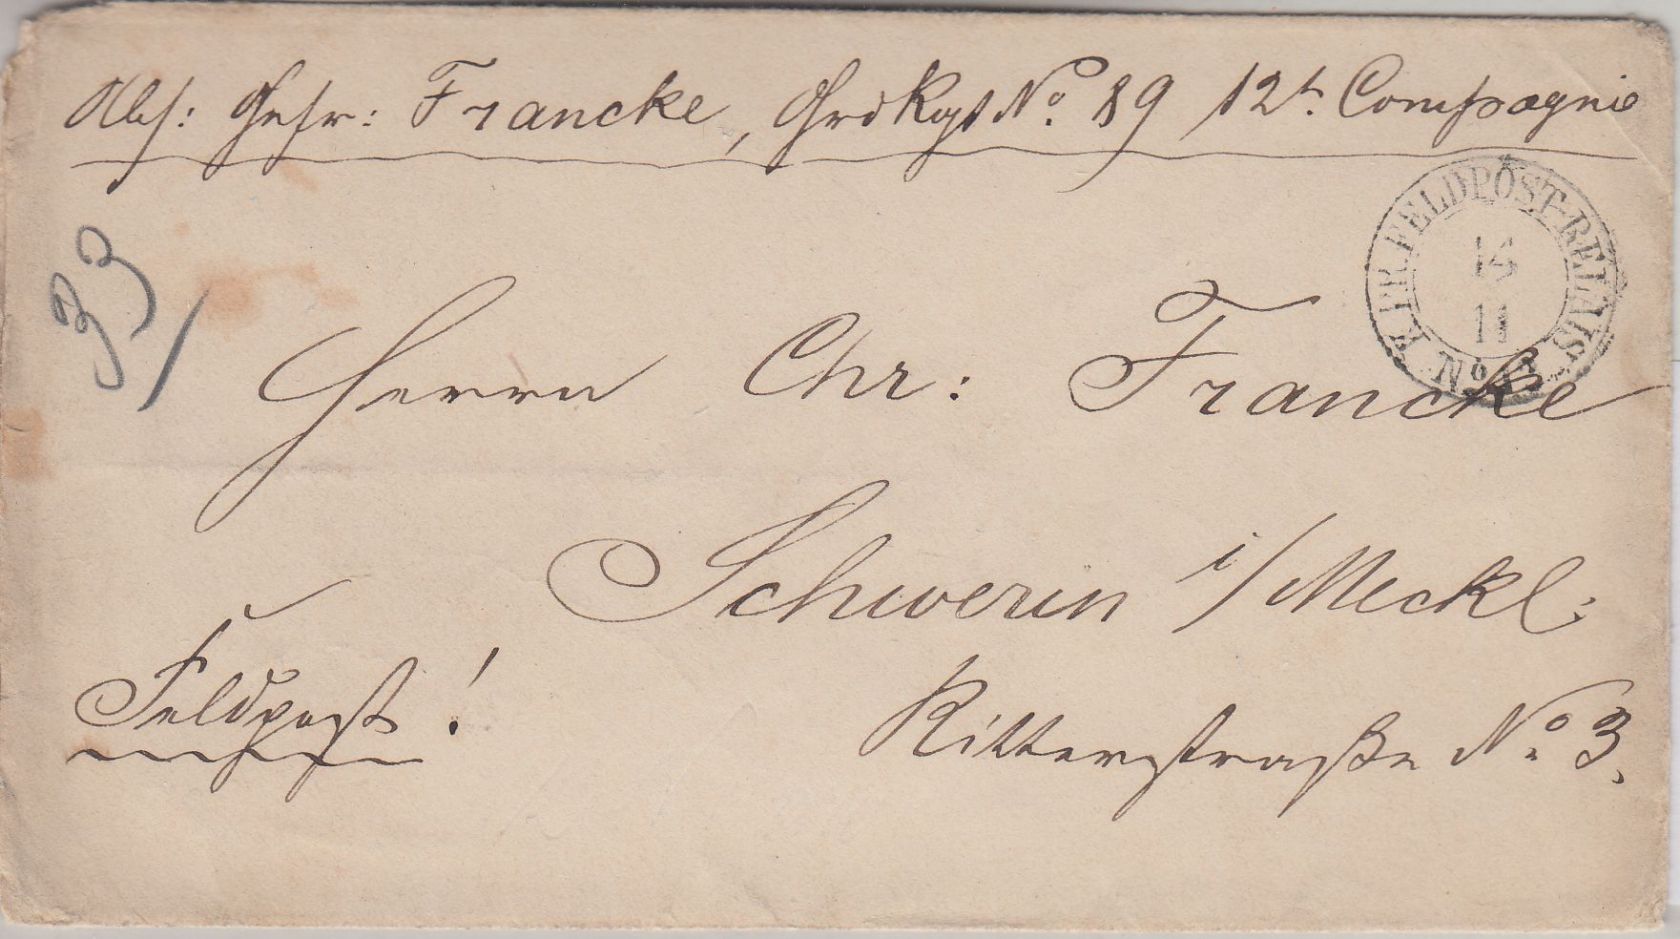 Abs: Gefr: Francke, GrdRgt No. 89 12t. Compagnie
K. PR. FELDPOST-RELAIS No
14
11
33/
Herrn Chr: Francke
Schwerin i/Meckl:
Feldpost!
Ritterstraße No. 3.